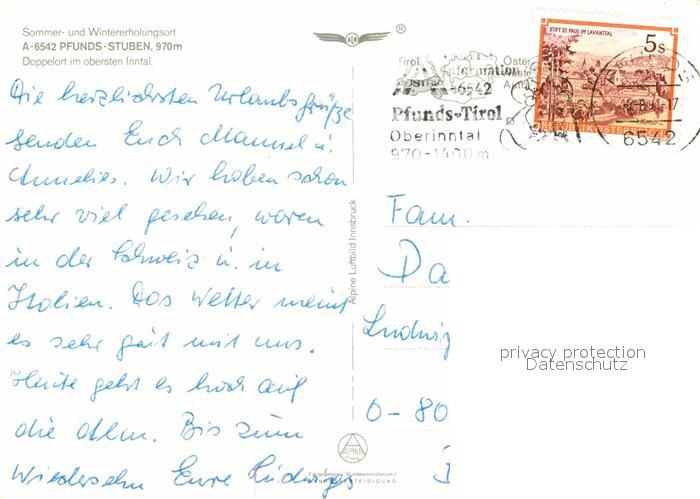 Sommer- und Wintererholungsort
A-6542 PFUNDS-STUBEN, 970m
Doppelort im obersten Inntal.
Die herzlichsten Urlaubsgrüße
senden Euch Manuel u.
Annelies. Wir haben schon
sehr viel gesehen, waren
in der Schweiz u. in
Italien. Das Wetter meint
es sehr gut mit uns.
Heute geht es hoch auf
die Alm. Bis zum
Wiedersehn Eure Ludwigs
Alpine Luftbild Innsbruck
ALPINA
®
STIFT ST. PAUL IM LAVANTTAL
5s
REPUBLIK ÖSTERREICH
Tirol
Information
6542
Pfunds-Tirol
Oberinntal
970-1400m
6542
Fam.
Da
Ludwig
O-80
privacy protection
Datenschutz